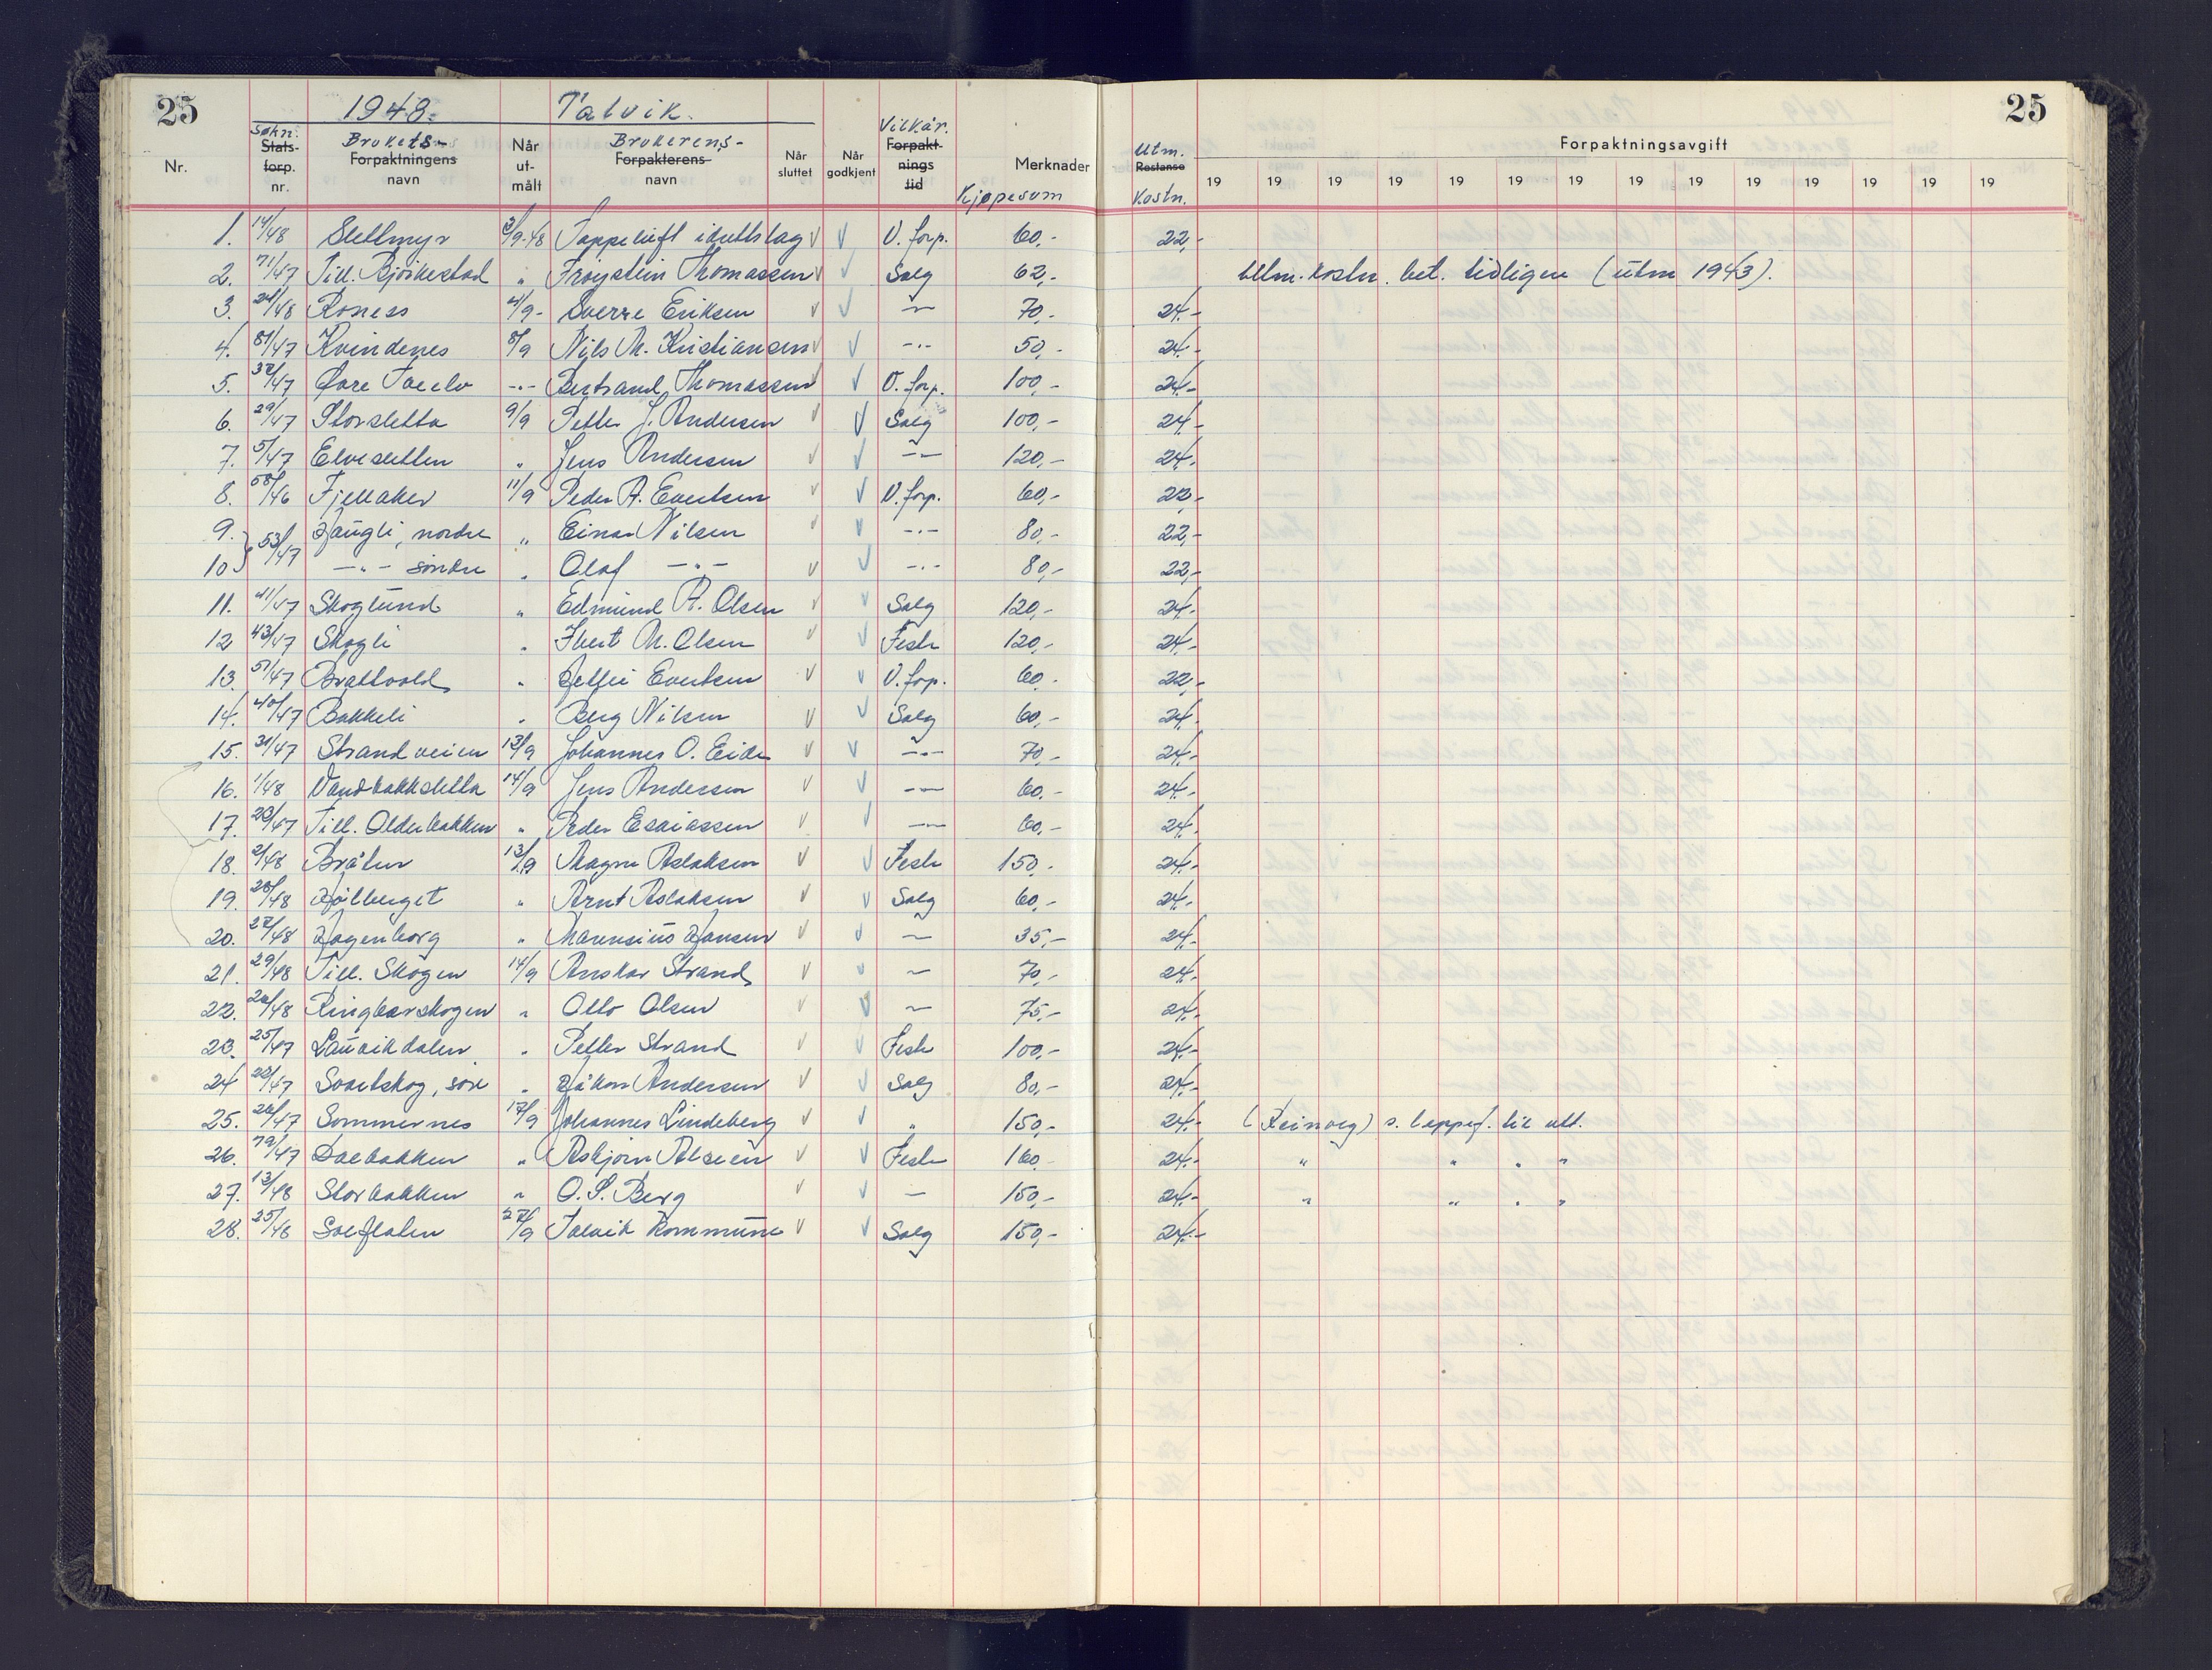 25 1948. Talvik. 25
Nr. Søkn. Stats-forp. nr. Brukets- Forpaktningens navn Når ut-målt Brukerens- Forpakterens navn Når sluttet Når godkjent Vilkår. Forpakt-nings tid Merknader Kjøpesum Utm. Restanse Kostn. Forpaktningsavgift
19 19 19 19 19 19 19 19 19 19 19 19 19 19
1. 14/48 Slettmyr 3/9-48 Tappeluft idrettslag V V V. forp. 60,- 22,-
2. 71/47 Till. Bjørkestad " Frøystein Thomassen V V Salg 62,- Utm. kostn. bet. tidligere (utm 1943).
3. 24/48 Roness 4/9- Sverre Eriksen V V — 70,- 24,-
4. 81/47 Kvindenes 8/9 Nils M. Kristiansen V V -"- 50,- 24,-
5. 32/47 Øvre Talelv -"- Bertrand Thomassen V V V. forp. 100,- 24,-
6. 29/47 Storsletta 9/9 Petter J. Andersen V V Salg 100,- 24,-
7. 5/47 Elvesletten " Jens Andersen V V -"- 120,- 24,-
8. 58/46 Fjellaker 11/9 Peder A. Evertsen V V V. forp. 60,- 22,-
9. } 53/47 Haugli, nordre " Einar Nilsen V V -"- 80,- 22,-
10 } -"- søndre " Olaf -"- V V -"- 80,- 22,-
11. 41/47 Skoglund " Edmund A. Olsen V V Salg 120,- 24,-
12 43/47 Skogli " Ibert M. Olsen V V Feste 120,- 24,-
13. 51/47 Brattvold " Evertsen V V V. forp. 60,- 22,-
14. 40/47 Bakkeli " Berg Nilsen V V Salg 60,- 24,-
15. 31/47 Strandveien 13/9 Johannes O. Eide V V -"- 70,- 24,-
16. 1/48 Vandbakksletta 14/9 Jens Andersen V V -"- 60,- 24,-
17. 23/47 Till. Olderbakken " Peder Esaiassen V V -"- 60,- 24,-
18. 2/48 Bråten 13/9 Magne Aslaksen V V Feste 150,- 24,-
19. 28/48 Hølberget " Arnt Aslaksen V V Salg 60,- 24,-
20. 27/48 Hagenborg " Marensius Hansen V V — 35,- 24,-
21. 29/48 Till. Skogen 14/9 Anskar Strand V V — 70,- 24,-
22. 22/48 Ringbarskogen " Otto Olsen V V — 75,- 24,-
23. 25/47 Lauvikdalen " Petter Strand V V Feste 100,- 24,-
24 22/47 Svartskog, søre " Håkon Andersen V V Salg 80,- 24,-
25. 26/47 Sommernes 17/9 Johannes Lindeberg V V " 150,- 24,- (Reinveg) s. oppg. til utt.
26. 79/47 Dalbakken " Asbjørn Alseen V V Feste 160,- 24,- " " " "
27. 13/48 Storbakken " O. S. Berg V V — 150,- 24,- " " " "
28. 25/48 Solflaten 27/9 Talvik kommune V V Salg 150,- 24,-